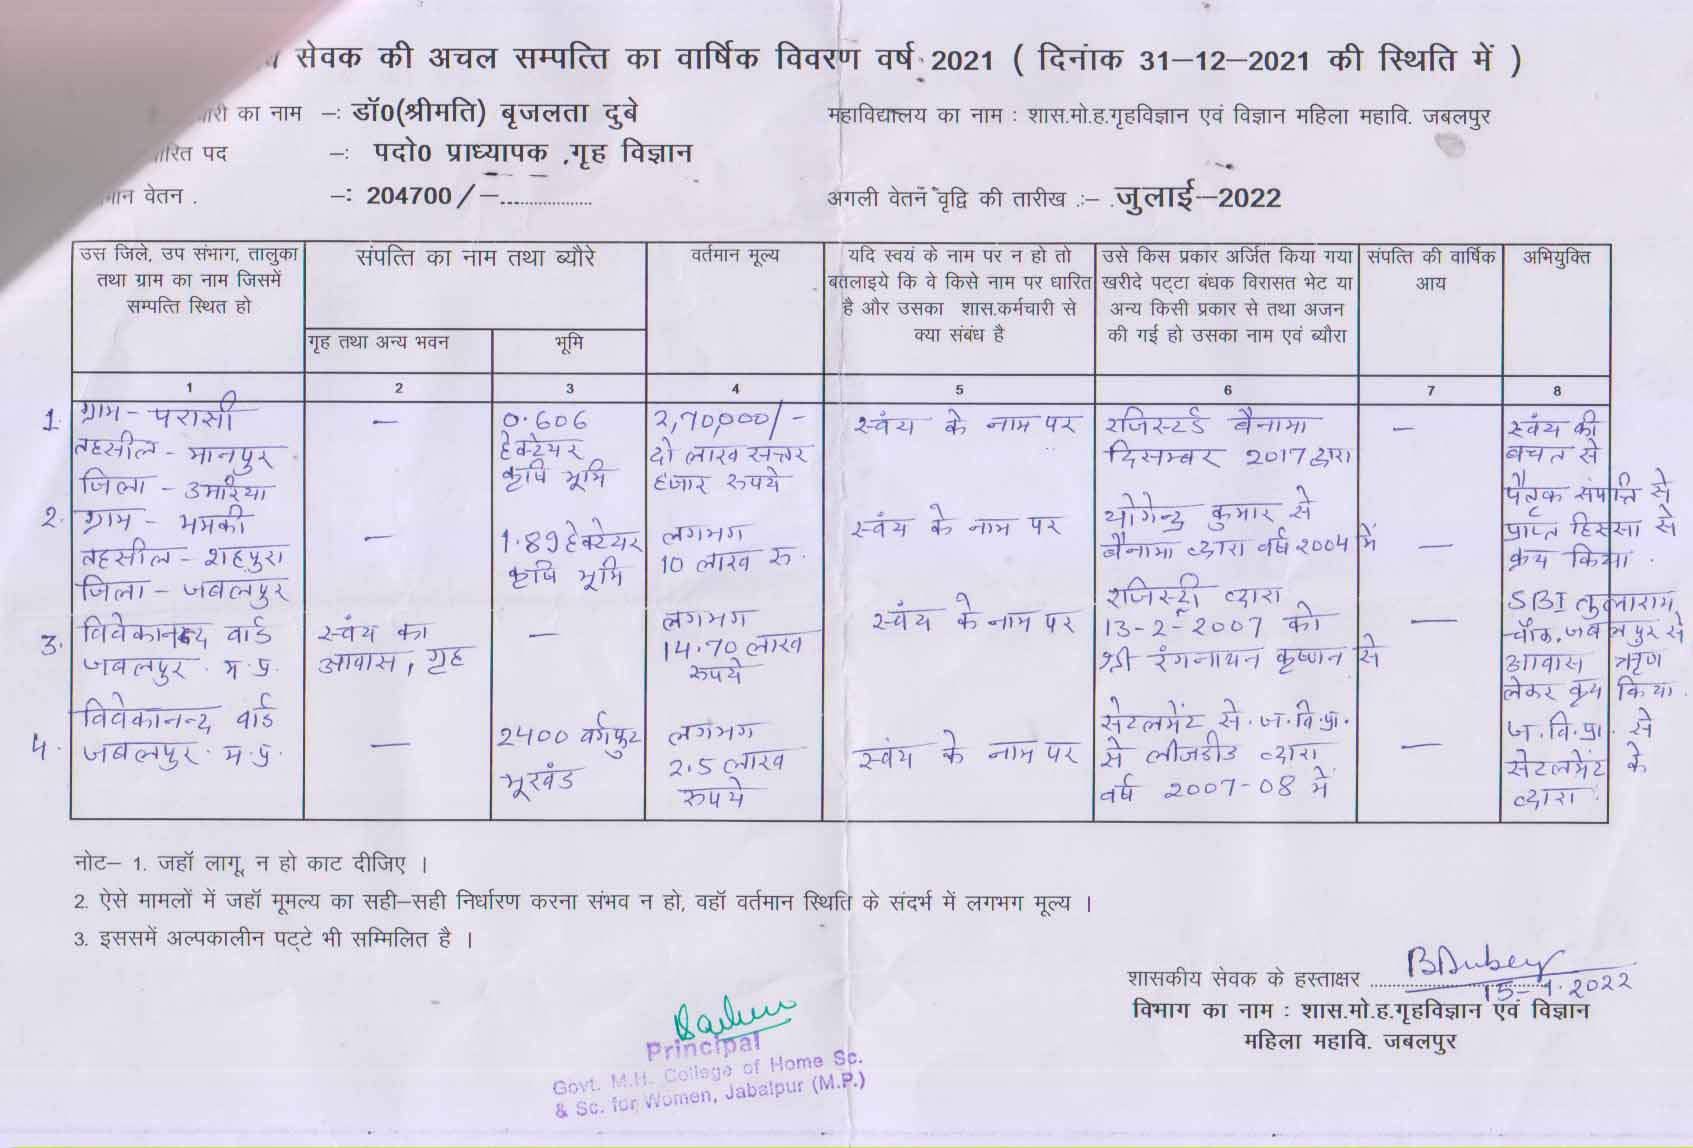 सेवक की अचल सम्पत्ति का वार्षिक विवरण वर्ष 2021 ( दिनांक 31–12–2021 की स्थिति में )
का नाम –: डॉ0(श्रीमति) बृजलता दुबे
महाविद्यालय का नाम : शास.मो.ह.गृहविज्ञान एवं विज्ञान महिला महावि. जबलपुर
पद –: पदो0 प्राध्यापक ,गृह विज्ञान
वेतन . –: 204700/–..................
अगली वेतन वृद्वि की तारीख :– .जुलाई–2022
उस जिले, उप संभाग, तालुका
तथा ग्राम का नाम जिसमें
सम्पत्ति स्थित हो
संपत्ति का नाम तथा ब्यौरे
गृह तथा अन्य भवन
भूमि
वर्तमान मूल्य
यदि स्वयं के नाम पर न हो तो
बतलाइये कि वे किसे नाम पर धारित
है और उसका शास.कर्मचारी से
क्या संबंध है
उसे किस प्रकार अर्जित किया गया
खरीदे पट्टा बंधक विरासत भेट या
अन्य किसी प्रकार से तथा अजन
की गई हो उसका नाम एवं ब्यौरा
संपत्ति की वार्षिक
आय
अभियुक्ति
1 2 3 4 5 6 7 8
1. ग्राम - परासी
तहसील - मानपुर
जिला - उमरिया
—
0.606
हेक्टेयर
कृषि भूमि
2,70,000/-
दो लाख सत्तर
हजार रुपये
स्वंय के नाम पर
रजिस्टर्ड बैनामा
दिसम्बर 2017 द्वारा
—
स्वंय की
बचत से
2. ग्राम - भमकी
तहसील - शहपुरा
जिला - जबलपुर
—
1.89 हेक्टेयर
कृषि भूमि
लगभग
10 लाख रु.
स्वंय के नाम पर
योगेन्द्र कुमार से
बैनामा व्दारा वर्ष 2004 में
—
पैतृक संपत्ति से
प्राप्त हिस्सा से
क्रय किया .
3. विवेकानन्द वार्ड
जबलपुर. म.प्र.
स्वंय का
आवास, गृह
—
लगभग
14.70 लाख
रूपये
स्वंय के नाम पर
रजिस्ट्री व्दारा
13-2-2007 को
श्री रंगनायन कृष्णन से
—
SBI तुलाराम
चौक, जबलपुर से
आवास ऋृण
लेकर क्रय किया.
4. विवेकानन्द वार्ड
जबलपुर. म.प्र.
—
2400 वर्गफुट
भूखंड
लगभग
2.5 लाख
रूपये
स्वंय के नाम पर
सेटलमेंट से. ज.वि.प्रा.
से लीजडीड व्दारा
वर्ष 2007-08 में
—
ज.वि.प्रा. से
सेटलमेंट के
व्दारा.
नोट– 1. जहॉ लागू, न हो काट दीजिए ।
2. ऐसे मामलों में जहॉ मूमल्य का सही–सही निर्धारण करना संभव न हो, वहॉ वर्तमान स्थिति के संदर्भ में लगभग मूल्य ।
3. इससमें अल्पकालीन पट्टे भी सम्मिलित है ।
शासकीय सेवक के हस्ताक्षर BDubey
15-1-2022
विभाग का नाम : शास.मो.ह.गृहविज्ञान एवं विज्ञान
महिला महावि. जबलपुर
Principal
Govt. M.H. College of Home Sc.
& Sc. for Women, Jabalpur (M.P.)